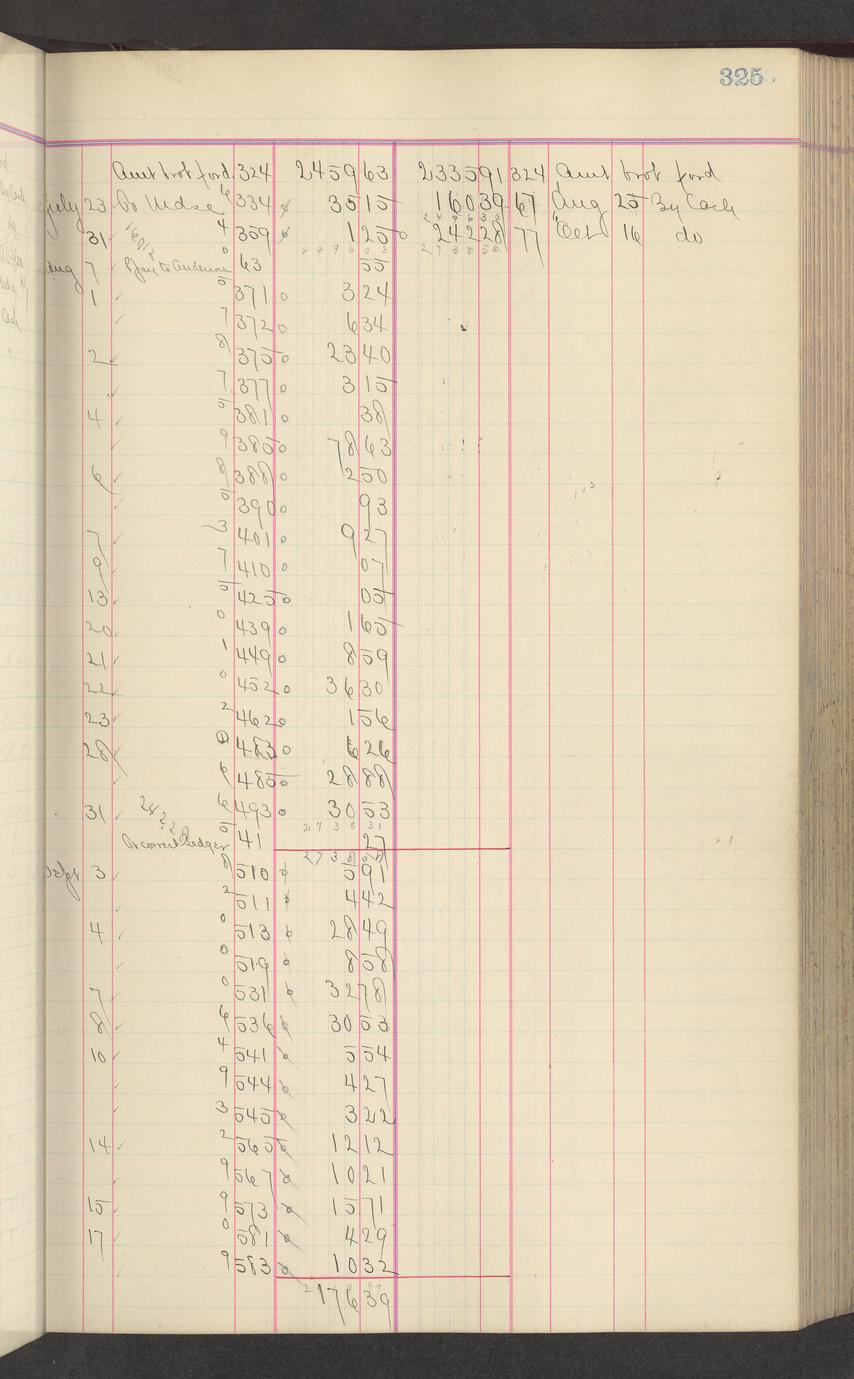 325
Amt brot ford. 324 2459 63 2335 91 324 Amt brot ford
July 23 To Mdse 6 334 35 15 160 39 67 Aug 25 By Cash
2 4 9 6 3 0
31 4 359 1 25 242 28 77 Oct 16 do
16012
2 4 9 6 0 3 2 7 3 8 5 8
Aug 7 0 63 55
1 5 371 3 24
7 372 6 34
2 8 375 23 40
7 377 3 15
4 5 381 38
9 385 78 63
6 8 388 2 50
5 390 93
7 3 401 9 27
9 7 410 07
13 5 425 05
20 0 439 1 65
21 1 449 8 59
22 0 452 36 30
23 2 462 1 56
28 483 6 26
6 485 28 88
31 6 493 30 53
24228
2 7 3 8 3 1
To correct Ledger 5 41 27
2 7 3 8 0 8
Sept 3 8 510 5 91
2 511 4 42
4 0 513 28 49
0 519 8 58
7 0 531 32 78
8 6 536 30 53
10 4 541 5 54
9 544 4 27
3 545 3 22
14 2 565 12 12
9 567 10 21
15 9 573 15 71
17 0 581 4 29
9 583 10 32
176 39